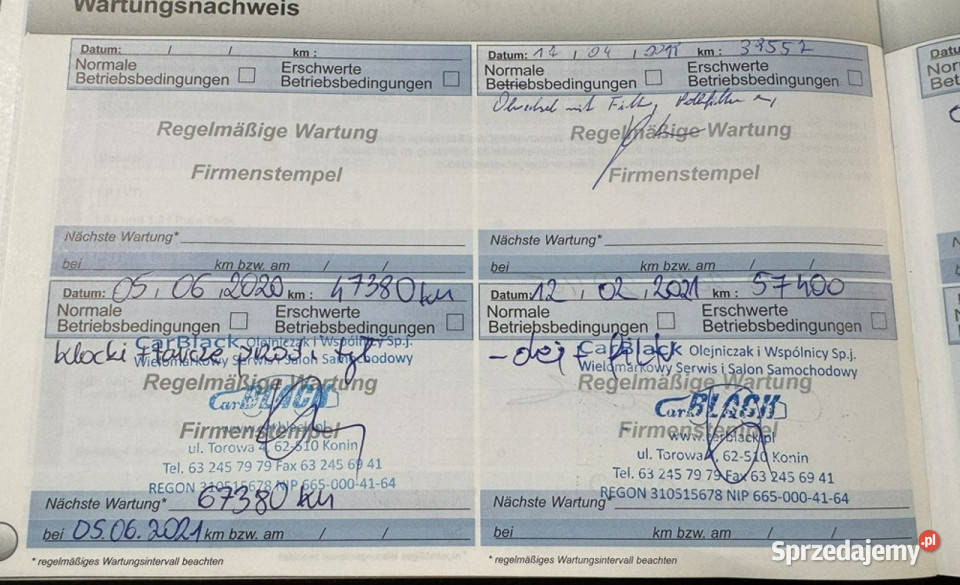 Wartungsnachweis
Datum: / / km :
Normale Betriebsbedingungen
Erschwerte Betriebsbedingungen
Regelmäßige Wartung
Firmenstempel
Nächste Wartung*
bei km bzw. am / /
Datum: 17, 04, km :
Normale Betriebsbedingungen
Erschwerte Betriebsbedingungen
mit
Regelmäßige Wartung
Firmenstempel
Nächste Wartung*
bei km bzw. am / /
Datum: 05, 06, 2020 km : 47380 km
Normale Betriebsbedingungen
Erschwerte Betriebsbedingungen
klocki + tarcze przód i tył
CarBlack Olejniczak i Wspólnicy Sp.j.
Wielomarkowy Serwis i Salon Samochodowy
Regelmäßige Wartung
Car BLACK
Firmenstempel
www.carblack.pl
ul. Torowa 4, 62-510 Konin
Tel. 63 245 79 79 Fax 63 245 69 41
REGON 310515678 NIP 665-000-41-64
Nächste Wartung* 67380 km
bei 05.06.2021 km bzw. am / /
* regelmäßiges Wartungsintervall beachten
Datum: 12, 02, 2021 km : 57400
Normale Betriebsbedingungen
Erschwerte Betriebsbedingungen
- olej +
CarBlack Olejniczak i Wspólnicy Sp.j.
Wielomarkowy Serwis i Salon Samochodowy
Regelmäßige Wartung
Car BLACK
Firmenstempel
www.carblack.pl
ul. Torowa 4, 62-510 Konin
Tel. 63 245 79 79 Fax 63 245 69 41
REGON 310515678 NIP 665-000-41-64
Nächste Wartung*
bei km bzw. am / /
* regelmäßiges Wartungsintervall beachten
Sprzedajemy.pl